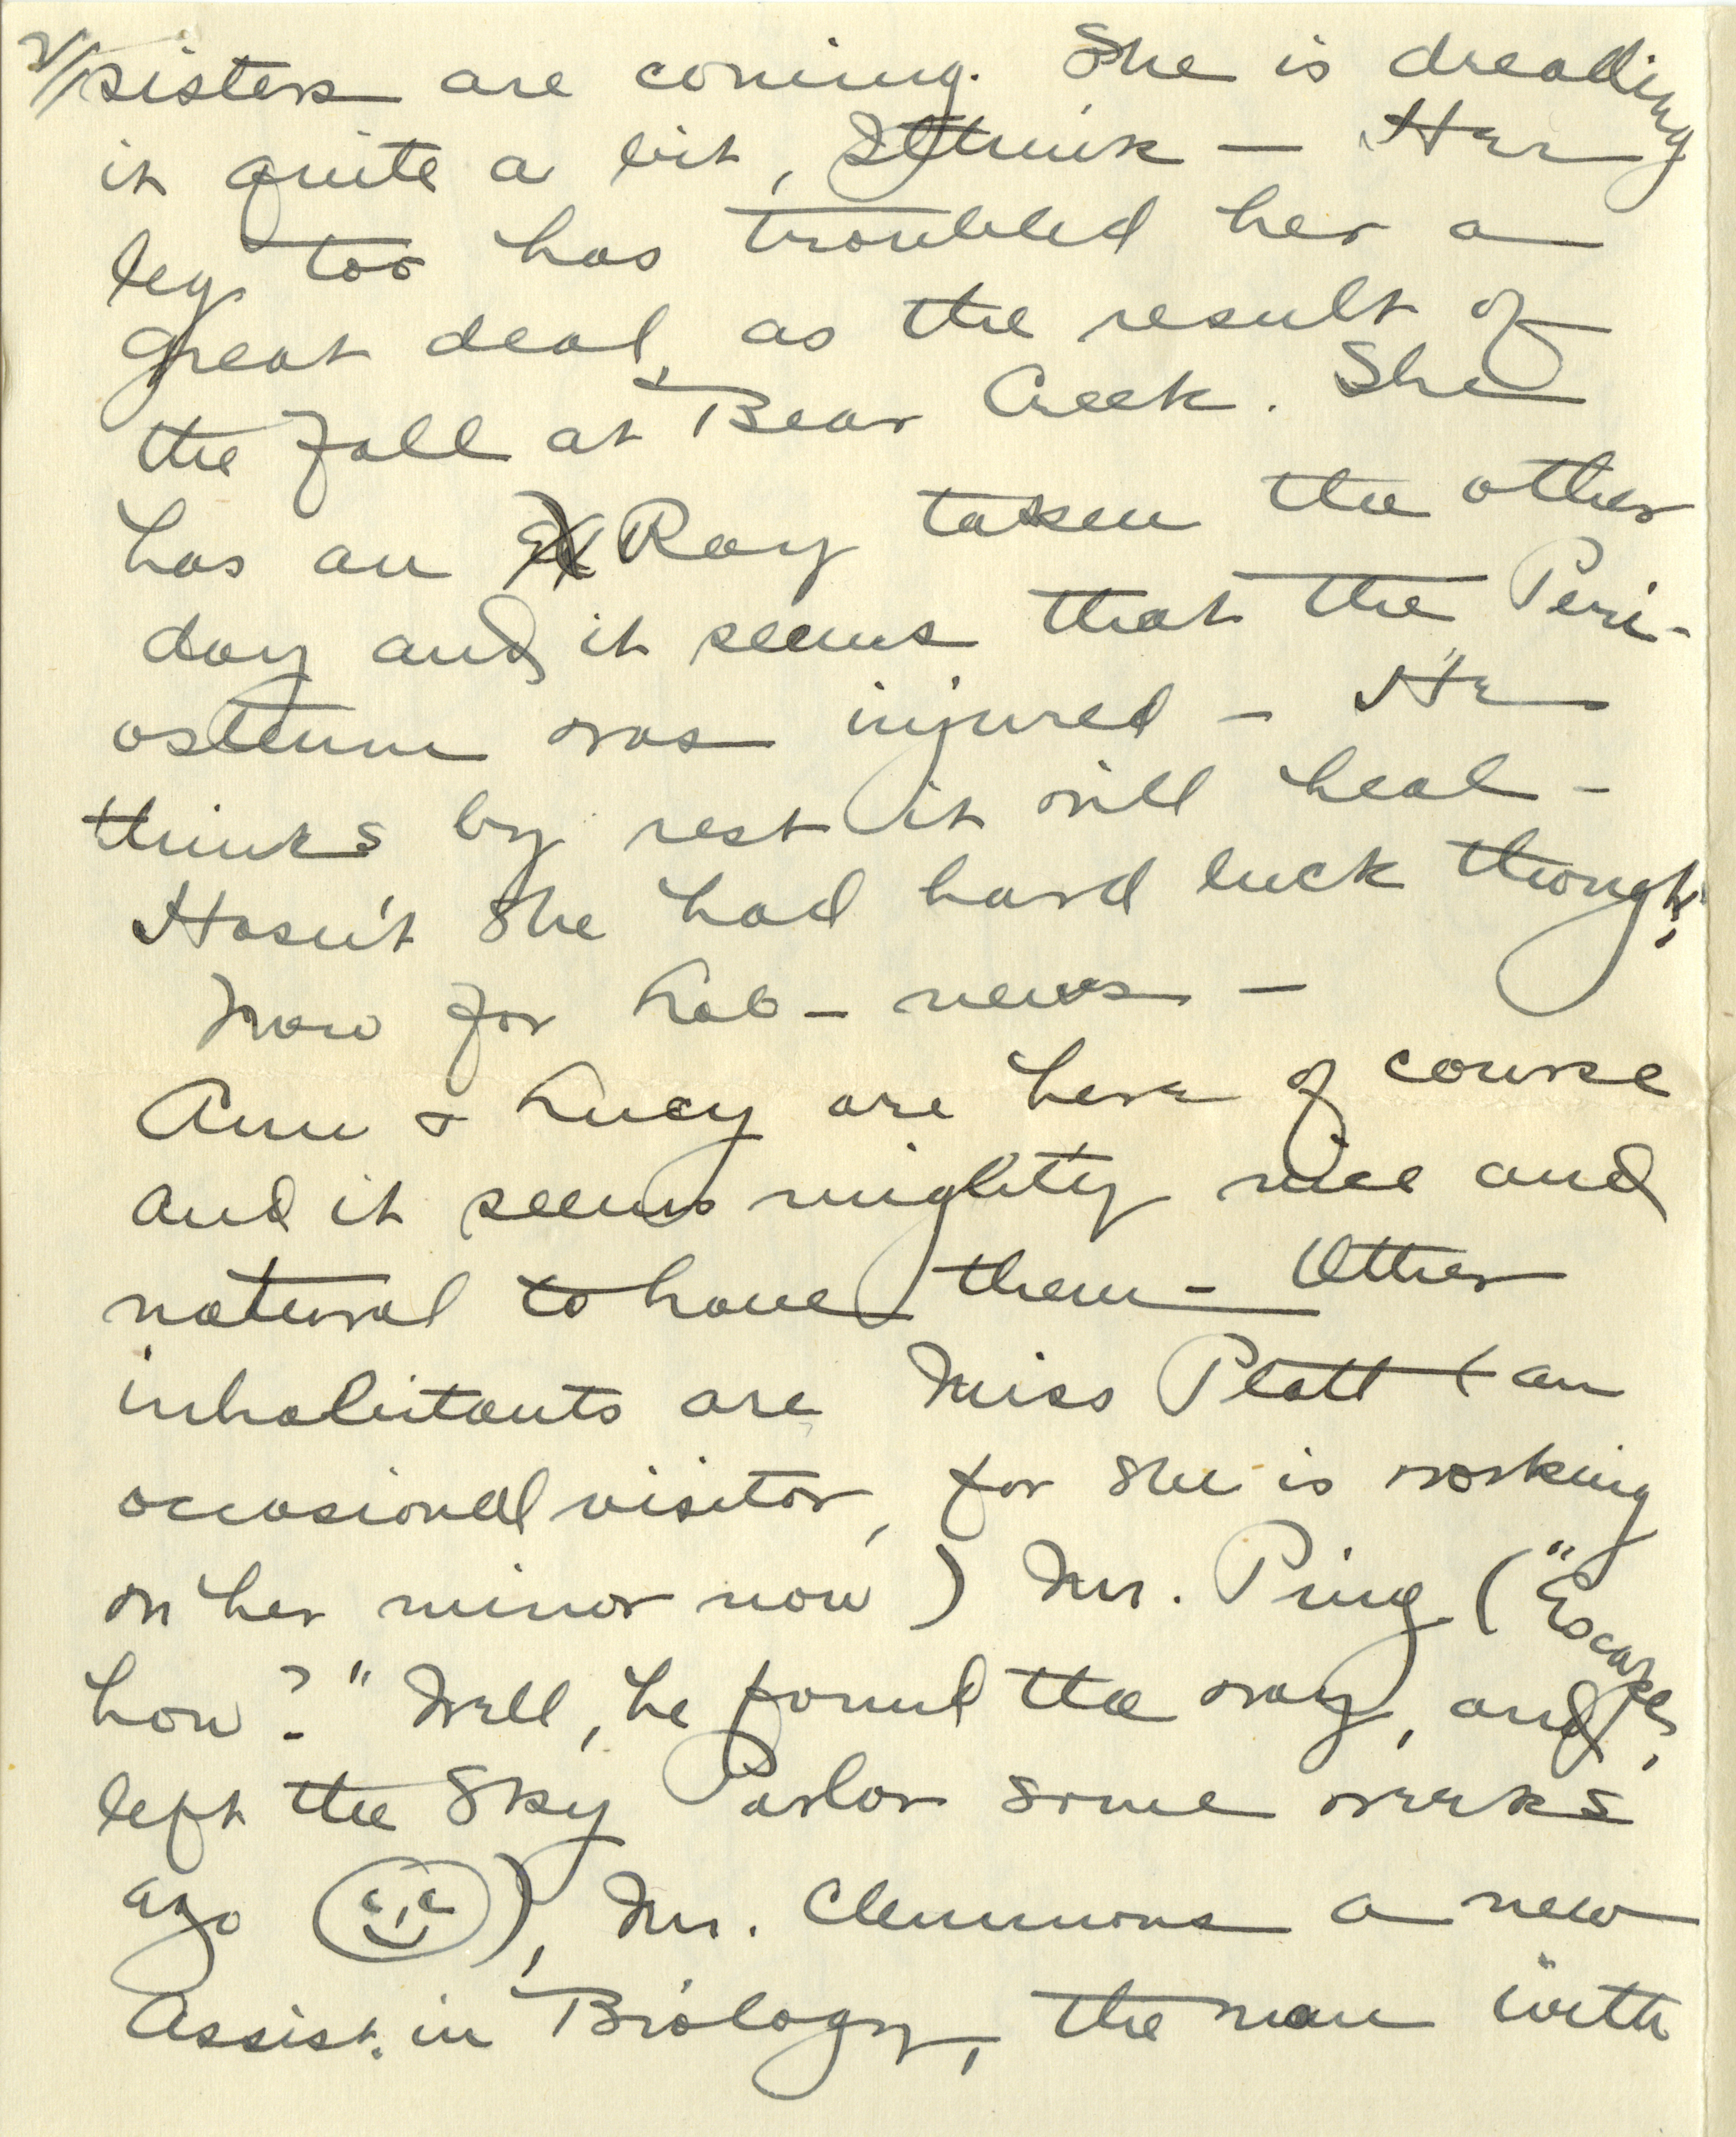 2/ sisters are coming. She is dreading
it quite a bit, I think — Her
leg too has troubled her a
great deal, as the result of
the fall at Bear Creek. She
has an X Ray taken the other
day and it seems that the Peri-
osteum was injured — He
thinks by rest it will heal —
Hasn't she had hard luck though!
Now for Lab — news —
Ann & Lucy are here of course
and it seems mighty nice and
natural to have them — Other
inhabitants are Miss Platt (an
occasional visitor, for she is working
on her minor now) Mr. Ping ("Escape,
how?" Well, he found the way, and
left the Sky Parlor some weeks
ago ), Mr. Clemmons a new
Assist. in Biology, the man "with